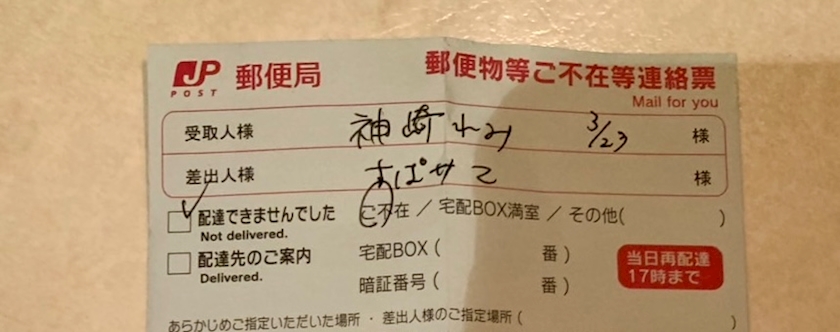 JP POST 郵便局
郵便物等ご不在等連絡票
Mail for you
受取人様 神崎れみ 3/23 様
差出人様 すぱサて 様
配達できませんでした ご不在 / 宅配BOX満室 / その他( )
Not delivered.
配達先のご案内 宅配BOX( 番)
Delivered.
暗証番号( 番)
当日再配達
17時まで
あらかじめご指定いただいた場所・差出人様のご指定場所( )